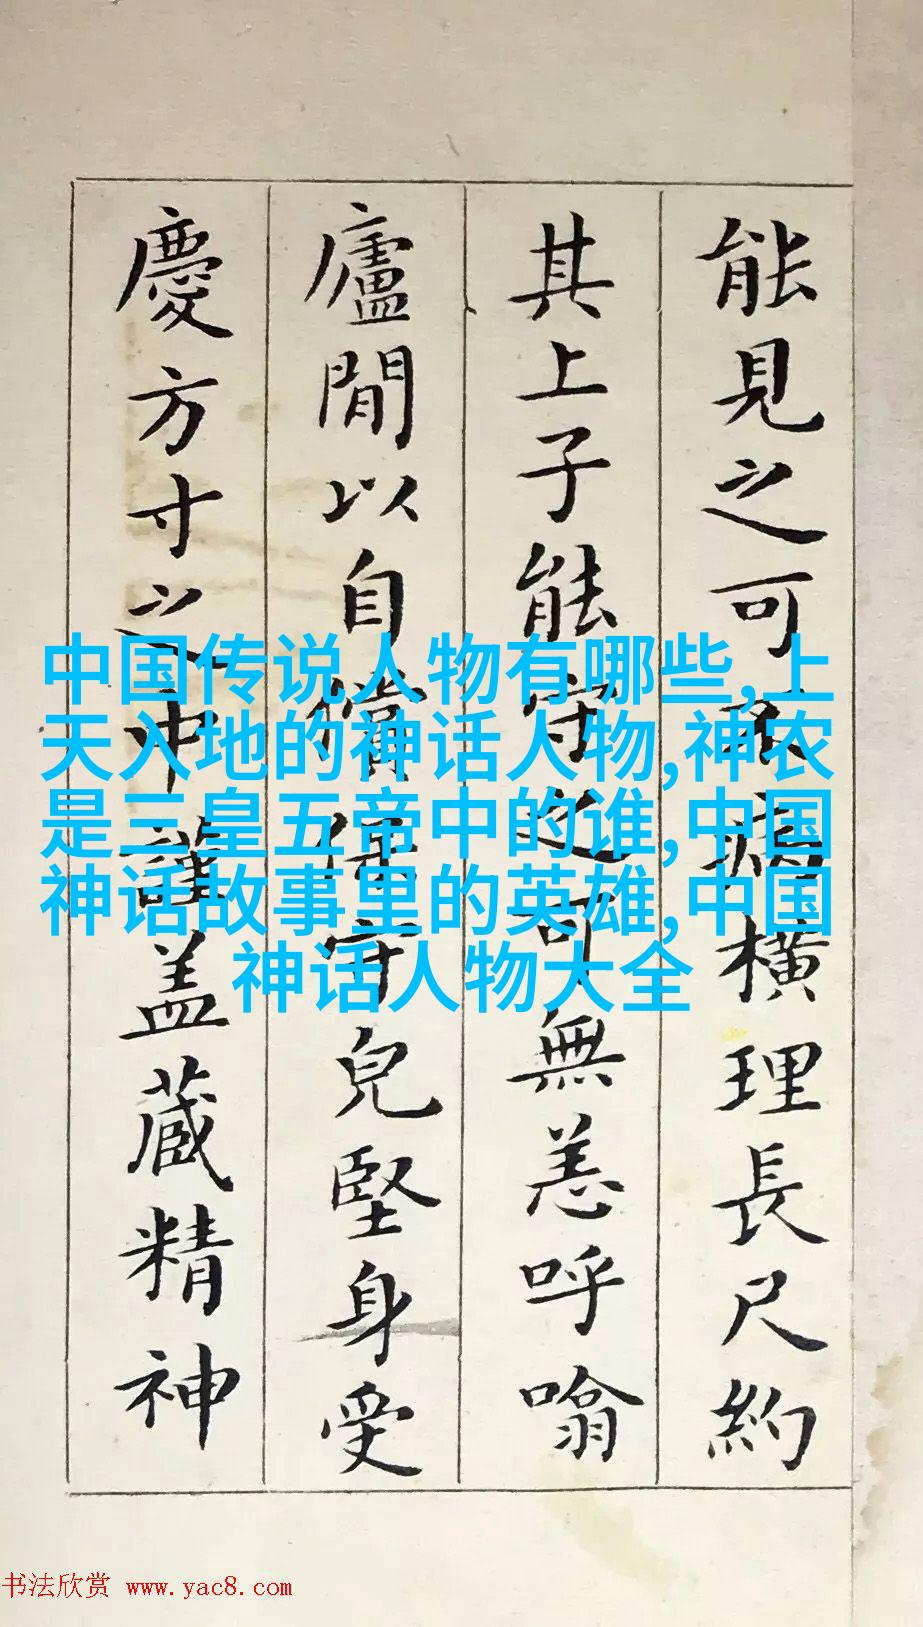 能見之可不病橫理長尺約
其上子能守之可無恙呼噏
廬間以自償保守兒堅身受
慶方寸之中謹盖藏精神
中国传说人物有哪些,上
天入地的神话人物,神农
是三皇五帝中的谁,中国
神话故事里的英雄,中国
神话人物大全
书法欣赏 www.yac8.com